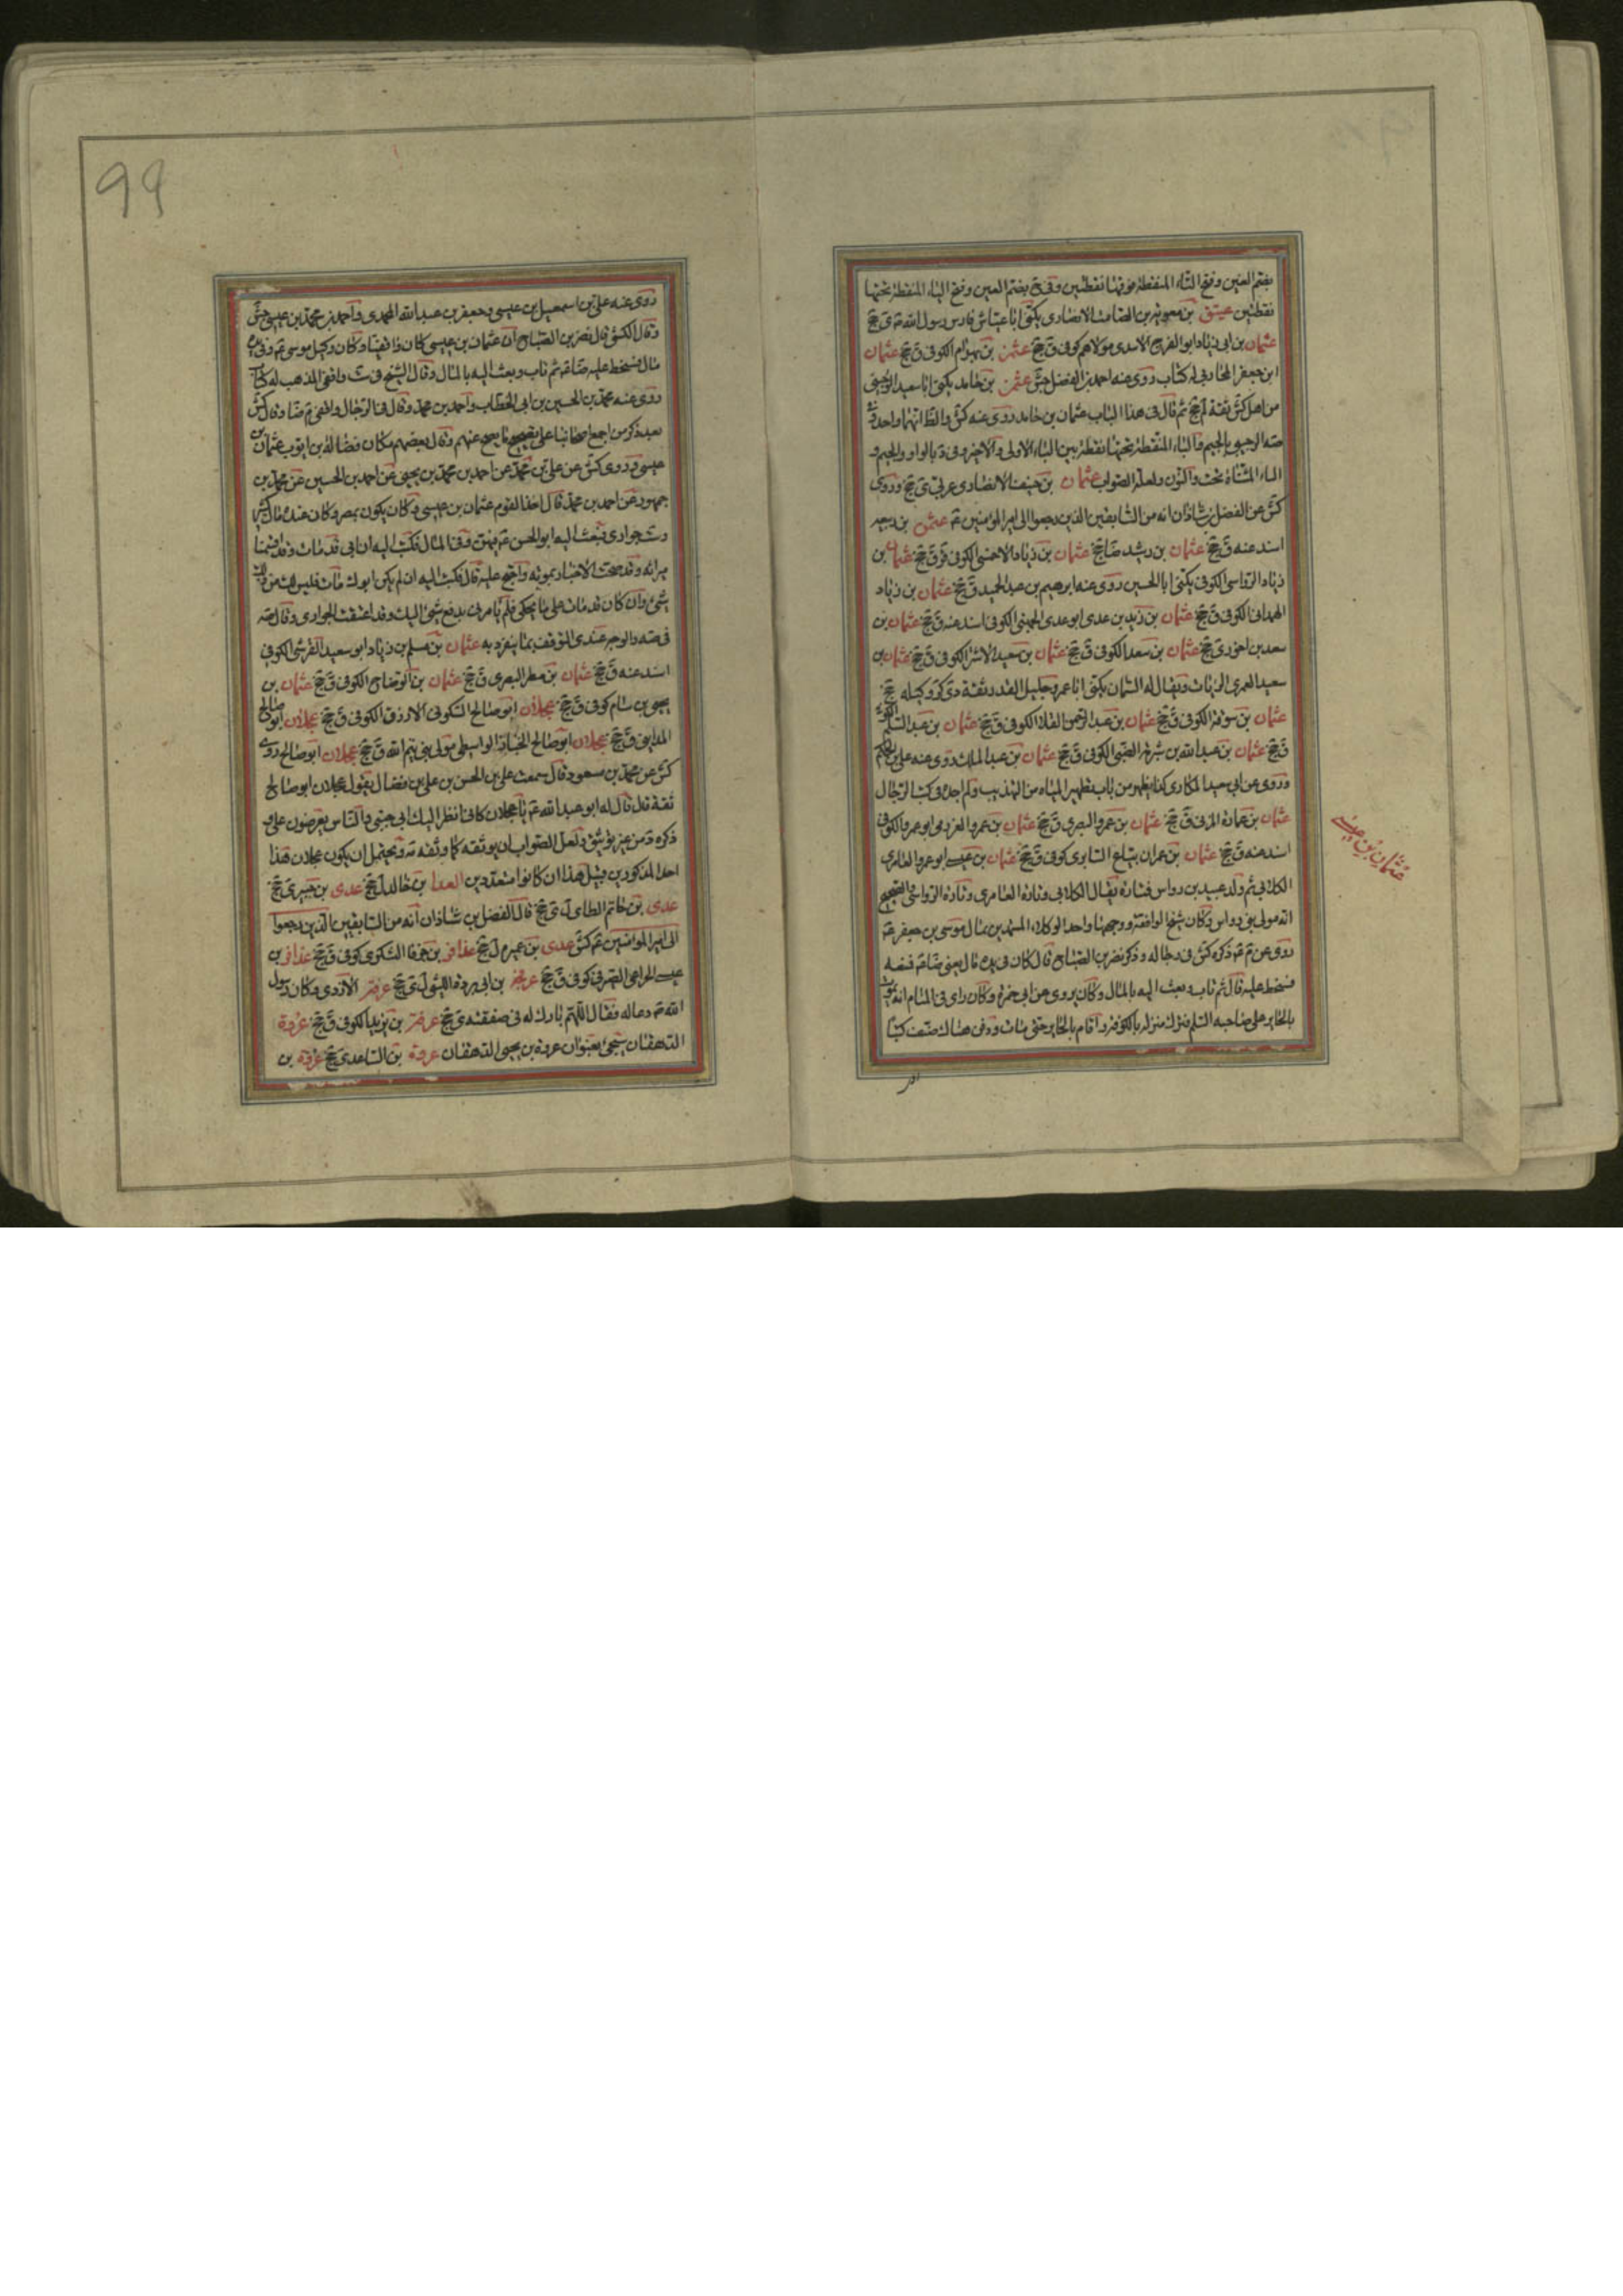 بضم العين وفتح التاء المنقطة فوقها نقطتين وفى بضم العين وفتح الباء المنقطة تحتها
نقطتين عتيق بن معوية بن الصامت الانصارى يكنى ابا عياش فارس رسول الله ى جخ
عثمان بن ابى زياد ابو الفرج الاسدى مولاهم كوفى ق جخ عثمن بن بهرام الكوفى ق جخ عثمان
ابن جعفر المحاربى له كتاب روى عنه احمد بن الفضل جش عثمن بن حامد يكنى ابا سعيد الوجينى
من اهل كش ثقة لم جخ ثم قال فى هذا الباب عثمان بن حامد روى عنه كش والظ انهما واحد وفى
صه الوجينى بالجيم والياء المنقطة تحتها نقطتين الياء الاولى والاخيرة وفى د بالواو والجيم و
الياء المثناة تحت والنون ولعله الصواب عثمان بن حنيف الانصارى عربى ى جخ وروى
كش عن الفضل بن شاذان انه من السابقين الذين رجعوا الى امير المؤمنين عثمن بن ربيعه
اسند عنه ق جخ عثمان بن رشيد ضا جخ عثمان بن زياد الاحمسى الكوفى ق ق جخ عثمان بن
زياد الرواسى الكوفى يكنى ابا الحسين روى عنه ابرهيم بن عبد الحميد ق جخ عثمان بن زياد
الهمدانى الكوفى ق جخ عثمان بن زيد بن عدى ابو عدى الجهنى الكوفى اسند عنه ق جخ عثمان بن
سعد بن احور ى جخ عثمان بن سعد الكوفى ق جخ عثمان بن سعيد الاشر الكوفى ق جخ عثمان بن
سعيد العمرى الزيات ويقال له السمان يكنى ابا عمرو جليل القدر ثقة دى كر وكيله جخ
عثمان بن سوقة الكوفى ق جخ عثمان بن عبد الرحمن الكوفى ق جخ عثمان بن عبد السلام
ق جخ عثمان بن عبد الله بن شبرمة الضبى الكوفى ق جخ عثمان بن عبد الملك روى عنه على بن الحكم
وروى عن ابى سعيد المكارى كذا يظهر من باب تطهير المياه من التهذيب ولم اجده فى كتب الرجال
عثمان بن عمارة المزنى ق جخ عثمان بن عمرو البصرى ق جخ عثمان بن عمرو العزرمى ابو عمرو الكوفى
اسند عنه ق جخ عثمان بن عمران بياع السابرى كوفى ق جخ عثمان بن عيسى ابو عمرو العامرى
الكلابى ثم ولد عبيد بن رواس فتارة يقال الكلابى وتارة العامرى وتارة الرواسى والصحيح
انه مولى بنى رواس وكان شيخ الواقفة ووجهها واحد الوكلاء المستبدين بمال موسى بن جعفر
روى عن ذكره كش فى رجاله وذكر نصر بن الصباح قال كان له فى يده مال يعنى ضا فمنعه
فسخط عليه قال ثم تاب وبعث اليه بالمال وكان يروى عن ابى حمزة وكان راى فى المنام انه يموت
بالحاير على صاحبه السلم فترك منزله بالكوفة واقام بالحاير حتى مات ودفن هناك صنف كتبا
عثمان بن عيسى
99
روى عنه على بن اسمعيل بن عيسى وجعفر بن عبد الله المحمدى واحمد بن محمد بن عيسى جش
وقال الكشى قال نصر بن الصباح ان عثمان بن عيسى كان واقفيا وكان وكيل موسى وفى يده
مال فسخط عليه ضا ثم تاب وبعث اليه بالمال وقال الشيخ فى ست واقفى المذهب له كتاب
روى عنه محمد بن الحسين بن ابى الخطاب واحمد بن محمد وقال فى الرجال واقفى م ضا وقال كش
بعد ذكر من اجمع اصحابنا على تصحيح ما يصح عنهم وقال بعضهم مكان فضالة بن ايوب عثمان بن
عيسى وروى كش عن على بن محمد عن احمد بن محمد بن يحيى عن احمد بن الحسين عن محمد بن
جمهور عن احمد بن محمد قال احد القوم عثمان بن عيسى وكان يكون بمصر وكان عنده مال كثير
وست جوارى فبعث اليه ابو الحسن فيهن وفى المال فكتب اليه ان ابى قد مات وقد اقتسمنا
ميراثه وقد صحت الاخبار بموته واحتج عليه قال فكتب اليه ان لم يكن ابوك مات فليس لك من ذلك
شئ وان كان قد مات على ما يحكى فلم يامرنى بدفع شئ اليك وقد اعتقت الجوارى وقال صه
فى صه والوجه عندى التوقف بما ينفرد به عثمان بن مسلم بن زياد ابو سعيد القرشى الكوفى
اسند عنه ق جخ عثمان بن مطر البصرى ق جخ عثمان بن الوضاح الكوفى ق جخ عثمان بن
يحيى بن سام كوفى ق جخ عجلان ابو صالح السكونى الازرق الكوفى ق جخ عجلان ابو صالح
المداينى ق جخ عجلان ابو صالح الخباز الواسطى مولى بنى تيم الله ق جخ عجلان ابو صالح روى
كش عن محمد بن مسعود قال سمعت على بن الحسن بن على بن فضال يقول عجلان ابو صالح
ثقة قال قال له ابو عبد الله يا عجلان كانى انظر اليك الى جنبى والناس يعرضون على
ذكره د من غير توثيق ولعل الصواب ان يوثقه كما وثقه ويحتمل ان يكون عجلان هذا
احد المذكورين قبيل هذا ان كانوا متعددين العدا بن خالد ل جخ عدى بن ى جخ
عدى بن حاتم الطاى ل ى جخ قال الفضل بن شاذان انه من السابقين الذين رجعوا
الى امير المؤمنين كش عدى بن عميرة ل جخ عذافر بن السكرى كوفى ق جخ عذافر بن
عيسى الخزاعى الصيرفى كوفى ق جخ عرفجة بن ابى بردة الليثى ل ى جخ عرفة الازدى وكان رسول
الله دعا له فقال اللهم بارك له فى صفقته ى جخ عرفة بن يزيد الكوفى ق جخ عروة
الدهقان سيجئ بعنوان عروة بن يحيى الدهقان عروة بن الساعدى جخ عروة بن